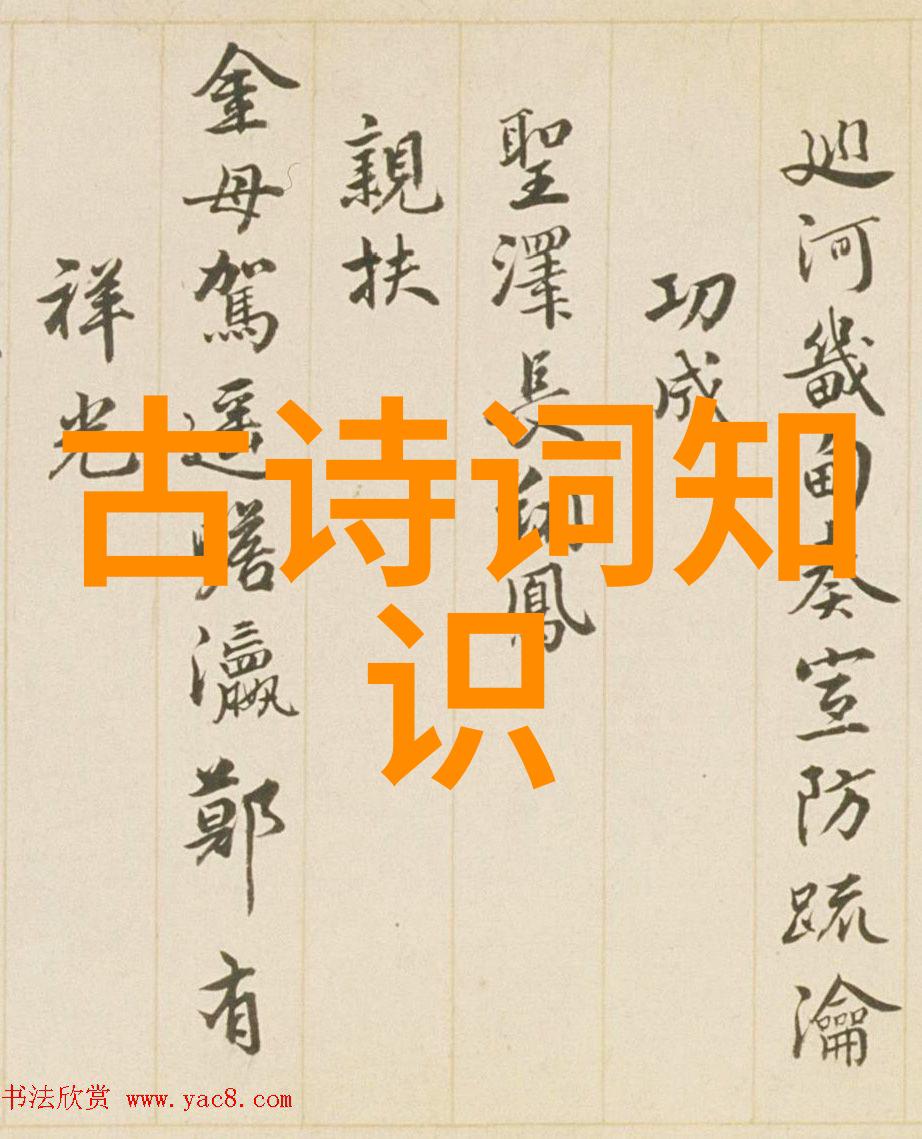 廵河畿甸奏宣防疏瀹
功成
聖澤長鳳
親扶
金母駕遥瞻瀛鄭有
祥光
古诗词知
识
书法欣赏 www.yac8.com